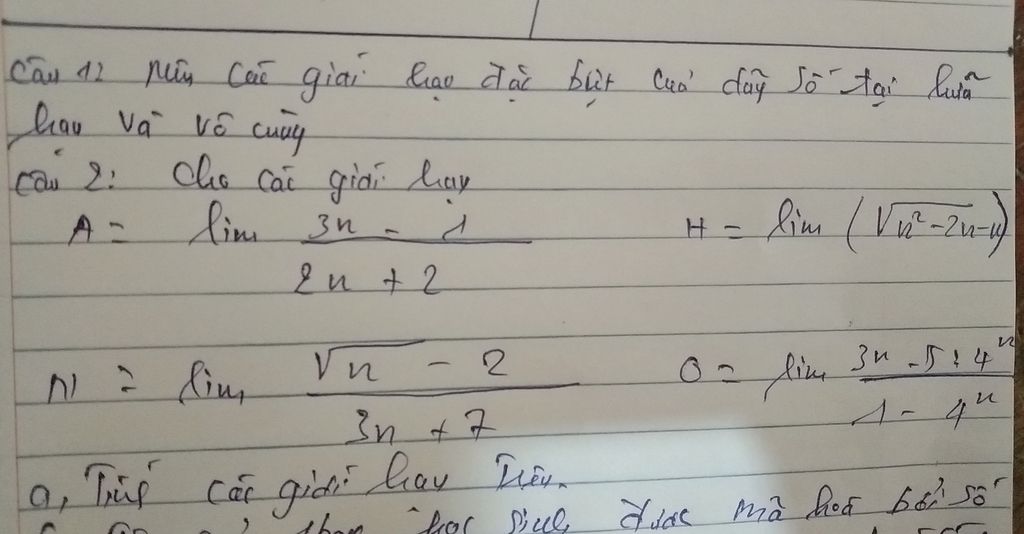 Câu 1: Nêu các giới hạn đặc biệt của dãy số tại hữu
hạn và vô cùng
Câu 2: Cho các giới hạn
A = lim (3n - 1)/(2n + 2) H = lim (√(n² - 2n) - n)
N = lim (√n - 2)/(3n + 7) O = lim (3n - 5.4ⁿ)/(1 - 4ⁿ)
a, Tính các giới hạn trên.
học sinh được mã hoá bởi số